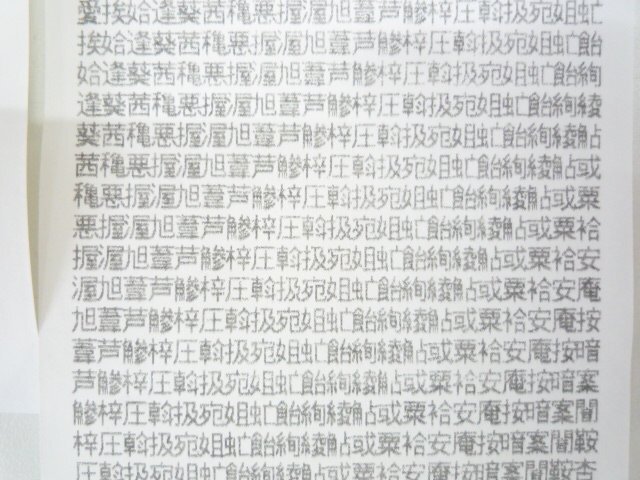 愛挨姶逢葵茜穐悪握渥旭葦芦鯵梓圧斡扱宛姐虻
挨姶逢葵茜穐悪握渥旭葦芦鯵梓圧斡扱宛姐虻飴
姶逢葵茜穐悪握渥旭葦芦鯵梓圧斡扱宛姐虻飴絢
逢葵茜穐悪握渥旭葦芦鯵梓圧斡扱宛姐虻飴絢綾
葵茜穐悪握渥旭葦芦鯵梓圧斡扱宛姐虻飴絢綾鮎
茜穐悪握渥旭葦芦鯵梓圧斡扱宛姐虻飴絢綾鮎或
穐悪握渥旭葦芦鯵梓圧斡扱宛姐虻飴絢綾鮎或粟
悪握渥旭葦芦鯵梓圧斡扱宛姐虻飴絢綾鮎或粟袷
握渥旭葦芦鯵梓圧斡扱宛姐虻飴絢綾鮎或粟袷安
渥旭葦芦鯵梓圧斡扱宛姐虻飴絢綾鮎或粟袷安庵
旭葦芦鯵梓圧斡扱宛姐虻飴絢綾鮎或粟袷安庵按
葦芦鯵梓圧斡扱宛姐虻飴絢綾鮎或粟袷安庵按暗
芦鯵梓圧斡扱宛姐虻飴絢綾鮎或粟袷安庵按暗案
鯵梓圧斡扱宛姐虻飴絢綾鮎或粟袷安庵按暗案闇
梓圧斡扱宛姐虻飴絢綾鮎或粟袷安庵按暗案闇鞍
圧斡扱宛姐虻飴絢綾鮎或粟袷安庵按暗案闇鞍杏